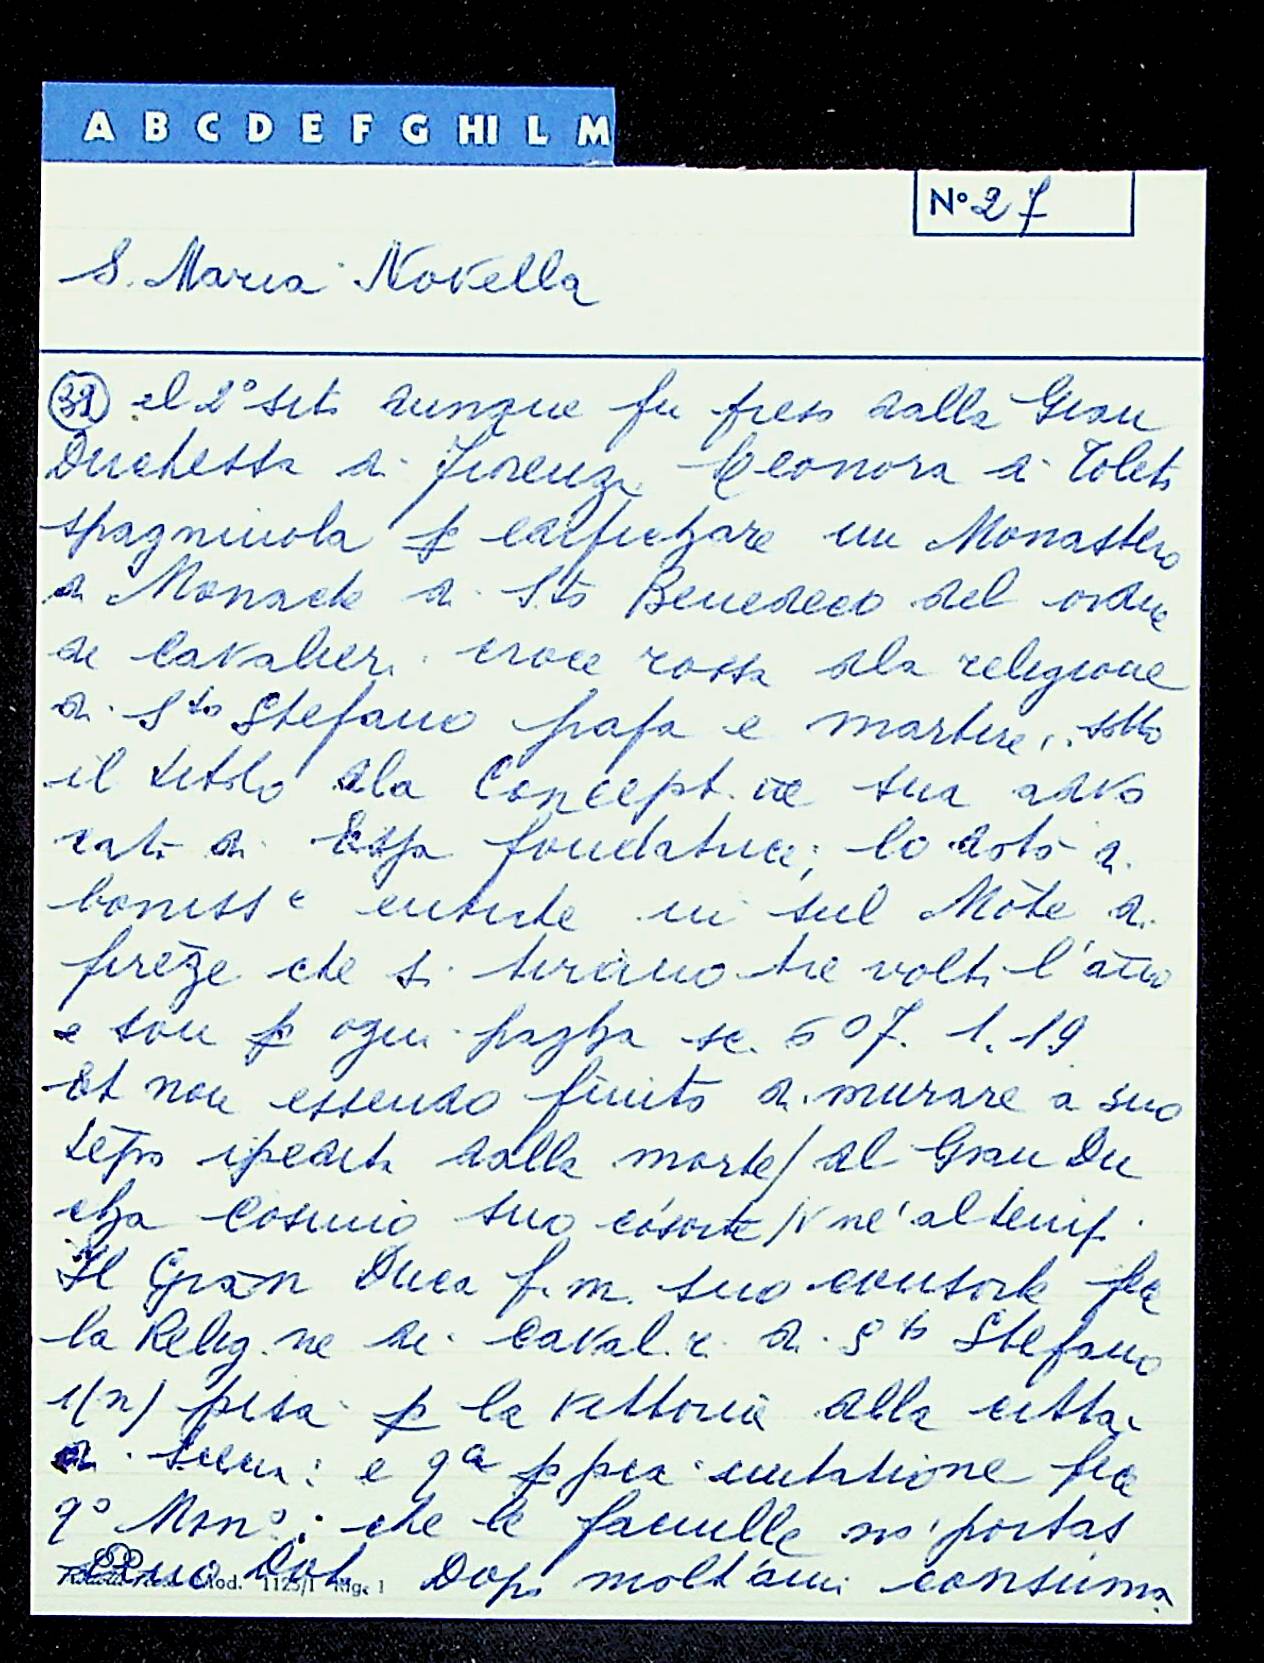 A B C D E F G HI L M
N° 27
S. Maria Novella
39 el 2° sito dunque fu preso dalla Gran
Duchessa di Firenze Leonora di Toleto
spagniuola p edifichare un Monastero
di Monache di Sto Benedeco del ordine
de Cavalieri croce rossa dla religione
di Sto Stefano papa e martire, sotto
il titolo dla Concept.ne sua advo
cata di Essa fondatrice; lo dotò di
boniss.e entrate in sul Mōte di
firēze che si tirāno tre volte l'āno
e son p ogni paghа sc. 507. 1. 19
Et non essendo finito di murare a suo
tēpo ipedita dalla morte/ al Gran Du
cha Cosimo suo cōsorte/
Il Gran Duca f.m. suo consorte fece
la Relig.ne de Caval.ri di Sto Stefano
i(n) pisa p la vittoria alla citta
di Siena: e qa p pia imitatione fece
qo Mon.o: che le fanciulle nō portas
sino Dote Dopo molt'āni consuma
Mod. 1125/1 Mgc 1